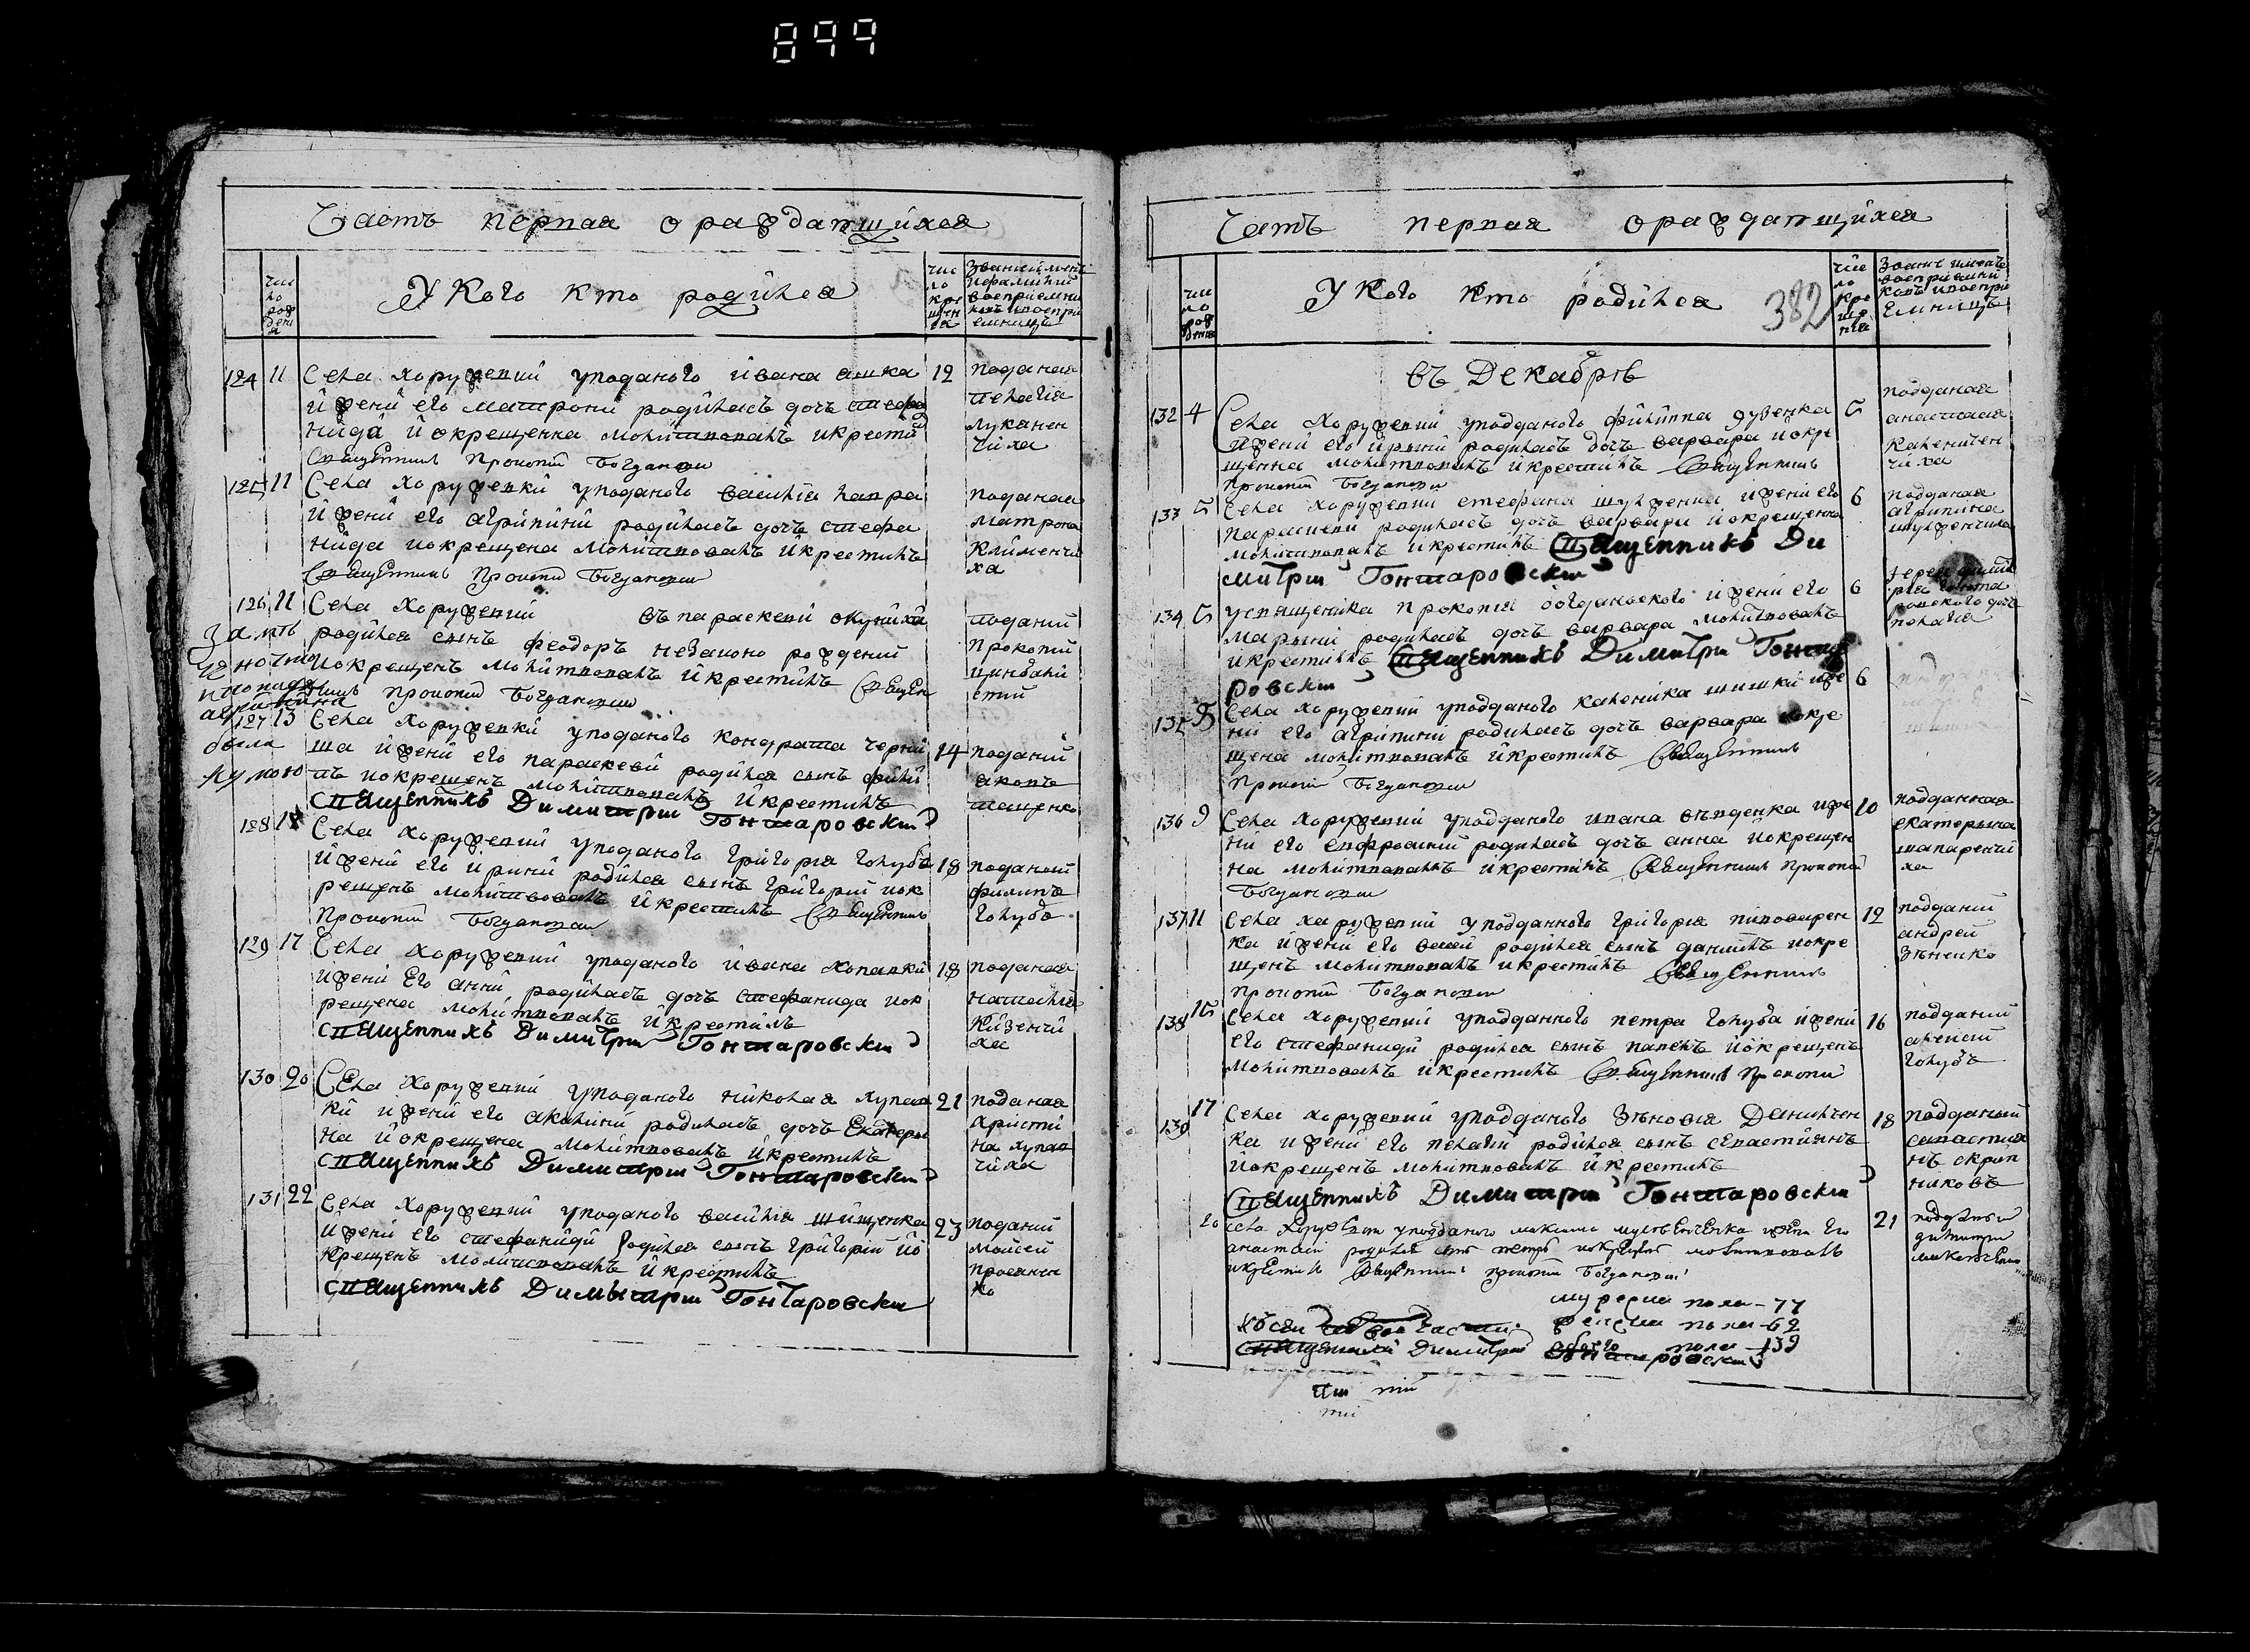 899
Часть первая о раждавшихся
чис
ло
рож
дени
я
У Кого кто родился
чис
ло
кре
щен
ия
Звание имена
и фамилии
восприемни
ковъ и воспри
емницъ
124 11 Села хоружевки уподаного ивана
и жени его матрони родилась дочь стефа
нида и окрещенна молитвовалъ и крести
Священникъ Прокопий Богдановски
12 поданая
пелагия
луканен
чиха
125 11 Села хоружевки уподаного василия лавра
и жени его агрипини родилась дочь стефа
нида и окрещена молитвовалъ и крестилъ
Священникъ Прокопий Богдановски
поданая
матрона
Клименчи
ха
126 11 Села хоружевки въ параскеви
родился сынъ феодоръ незаконо рождений
и окрещенъ молитвовалъ и крестилъ Священ
никъ Прокопий Богдановски
поданий
прокопий
127 13 Села хоружевки уподаного кондрата черни
ша и жени его параскеви родился сынъ фили
пъ и окрещенъ молитвовалъ и крестилъ
Священникъ Димитрий Гончаровский
14 поданий
яковъ
128 Села хоружевки уподаного григория голуба
и жени его ирини родился сынъ григорий иок
рещенъ молитвовалъ и крестилъ Священникъ
Прокопий Богдановски
18 поданий
филипъ
голубъ
129 17 Села хоружевки уподаного ивана хопавки
и жени его анни родилась дочь стефанида иок
рещена молитвовалъ и крестилъ
Священникъ Димитрий Гончаровский
18 поданая
наталия
Кизенчи
ха
130 20 Села хоружевки уподаного николая лупав
ки и жени его акилини родилась дочь Екатери
на и окрещена молитвовалъ и крестилъ
Священникъ Димитрий Гончаровский
21 поданая
христи
на лупав
чиха
131 22 Села хоружевки уподаного василия шищенка
и жени его стефаниди родился сынъ григорий ио
крещенъ молитвовалъ и крестилъ
Священникъ Димытрий Гончаровски
23 поданий
моисей
просянен
ко
Часть первая о раждавшихся
чис
ло
рож
дения
У Кого кто родился
382
чис
ло
кре
ще
ния
Звание имена
восприемни
ковъ и воспри
емницъ
въ Декабрѣ
132 4 Села хоружевки уподданого филиппа дузенка
и жени его ирини родилась дочь варвара и окре
щенна молитвовалъ и крестилъ Священникъ
Прокопий Богдановски
5 подданая
анастасия
каленичен
чиха
133 5 Села хоружевки стефана шулженка и жени его
параскеви родилась дочь варвара и окрещенна
молитвовалъ и крестилъ Священникъ Ди
митрий Гончаровский
6 подданая
агрипина
шулженчиха
134 5 у священика прокопия богдановского и жени его
марыии родилась дочь варвара молитвовалъ
и крестилъ Священникъ Димитрий Гонча
ровский
6 иерея димит
рия гонча
ровского дочь
пелагия
135 5 Села хоружевки уподданого каленика шишки и же
ни его агрипини родилась дочь варвара и окре
щена молитвовалъ и крестилъ Священникъ
Прокопий Богдановски
6
136 9 Села хоружевки уподданого ивана въвденка и же
ни его евфросинии родилась дочь анна и окрещен
на молитвовалъ и крестилъ Священникъ Прокопий
Богдановски
10 подданная
екатерина
шапаренчи
ха
137 11 Села харужевки уподданного григория пивоварен
ка и жени его васси родился сынъ даниилъ иокре
щенъ молитвовалъ и крестилъ Священникъ
Прокопий Богдановски
12 подданий
андрей
138 15 Села хоружевки уподданного петра голуба и жени
его стефаниди родился сынъ павелъ и окрещенъ
молитвовалъ и крестилъ Священникъ Прокопий
16 подданий
алексий
голубъ
139 17 Села хоружевки уподданого зѣновия Данилчен
ка и жени его пелагии родился сынъ севастиянъ
и окрещенъ молитвовалъ и крестилъ
Священникъ Димитрий Гончаровский
18 подданый
севастия
нъ скрип
никовъ
20 села Хоружевки уподданого максима и жени его
анастасии родился сынъ петръ и окрещенъ молитвовалъ
и крестилъ Священникъ Прокопий Богдановский
21 подданый
димитрий
мужеска пола - 77
женска пола - 62
обоего пола 139
Священникъ Димитрий Гончаровский